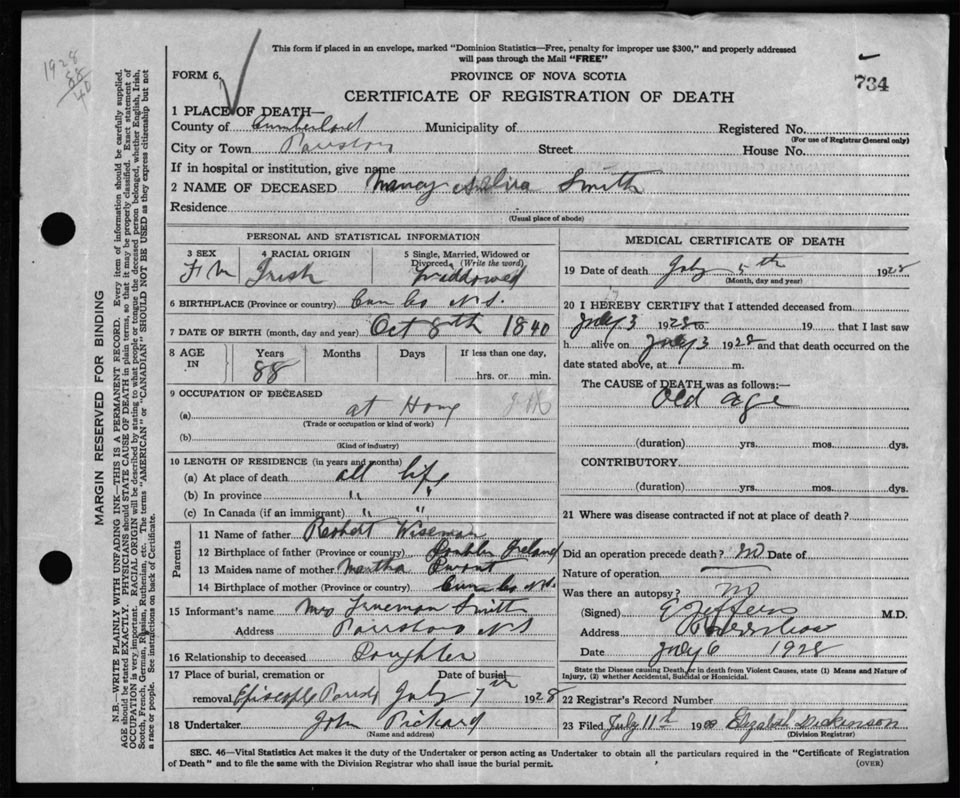 This form if placed in an envelope, marked "Dominion Statistics—Free, penalty for improper use $300," and properly addressed
will pass through the Mail "FREE"
1928
88
40
FORM 6.
PROVINCE OF NOVA SCOTIA
734
CERTIFICATE OF REGISTRATION OF DEATH
1 PLACE OF DEATH—
County of Cumberland Municipality of Registered No.
(For use of Registrar General only)
City or Town Street House No.
If in hospital or institution, give name
2 NAME OF DECEASED Nancy Smith
Residence
(Usual place of abode)
PERSONAL AND STATISTICAL INFORMATION
3 SEX 4 RACIAL ORIGIN 5 Single, Married, Widowed or Divorced, (Write the word)
Irish Widdowed
6 BIRTHPLACE (Province or country) Cum Co N.S.
7 DATE OF BIRTH (month, day and year) Oct 8th 1840
8 AGE IN Years Months Days If less than one day,
88 hrs. or min.
9 OCCUPATION OF DECEASED
(a) at Home
(Trade or occupation or kind of work)
(b)
(Kind of industry)
10 LENGTH OF RESIDENCE (in years and months)
(a) At place of death all life
(b) In province " "
(c) In Canada (if an immigrant) " "
Parents
11 Name of father Robert Wiseman
12 Birthplace of father (Province or country) Ireland
13 Maiden name of mother Martha
14 Birthplace of mother (Province or country) Cum Co N.S.
15 Informant's name Mrs Trueman Smith
Address N S
16 Relationship to deceased Daughter
17 Place of burial, cremation or Date of burial
removal July 7th 1928
18 Undertaker John Pickard
(Name and address)
MEDICAL CERTIFICATE OF DEATH
19 Date of death July 5th 1928
(Month, day and year)
20 I HEREBY CERTIFY that I attended deceased from
July 3 1928 to 19 that I last saw
h alive on July 3 1928 and that death occurred on the
date stated above, at m.
The CAUSE of DEATH was as follows:—
Old age
(duration) yrs. mos. dys.
CONTRIBUTORY
(duration) yrs. mos. dys.
21 Where was disease contracted if not at place of death?
Did an operation precede death? no Date of
Nature of operation
Was there an autopsy? no
(Signed) M.D.
Address
Date July 6 1928
State the Disease causing Death, or in death from Violent Causes, state (1) Means and Nature of
Injury, (2) whether Accidental, Suicidal or Homicidal.
22 Registrar's Record Number
23 Filed July 11th 1928 Elizabeth Dickinson
(Division Registrar)
SEC. 46—Vital Statistics Act makes it the duty of the Undertaker or person acting as Undertaker to obtain all the particulars required in the "Certificate of Registration
of Death" and to file the same with the Division Registrar who shall issue the burial permit. (OVER)
MARGIN RESERVED FOR BINDING
N.B.—WRITE PLAINLY WITH UNFADING INK—THIS IS A PERMANENT RECORD. Every item of information should be carefully supplied.
AGE should be stated EXACTLY. PHYSICIANS should STATE CAUSE OF DEATH in plain terms, so that it may be properly classified. Exact statement of
OCCUPATION is very important. RACIAL ORIGIN will be described by stating to what people or tongue the deceased person belonged, whether English, Irish,
Scotch, French, German, Russian, Ruthenian, etc. The terms "AMERICAN" or "CANADIAN" SHOULD NOT BE USED as they express citizenship but not
a race or people. See instructions on back of Certificate.